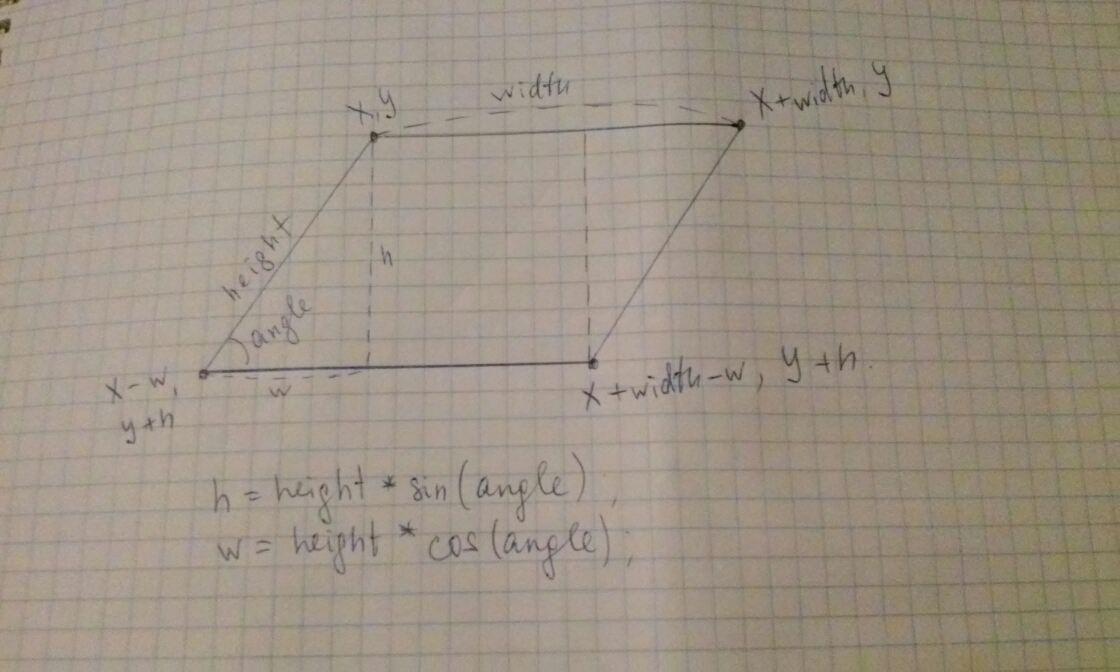 width
x, y
x+width, y
height
h
angle
w
x-w,
y+h
x+width-w, y+h.
h = height * sin(angle);
w = height * cos(angle);